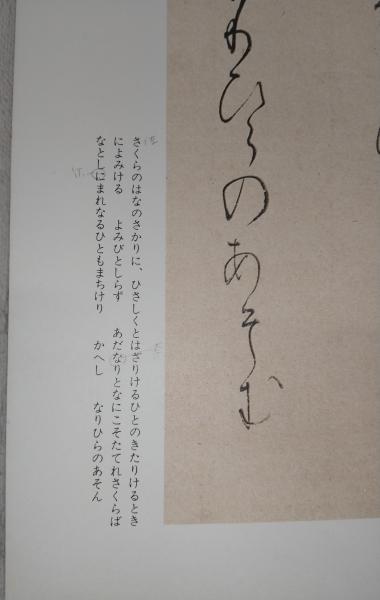 ひらのあそむ
さくらのはなのさかりに、ひさしくとはざりけるひとのきたりけるとき
によみける　よみびとしらず　あだなりとなにこそたてれさくらば
なとしにまれなるひともまちけり　かへし　なりひらのあそん